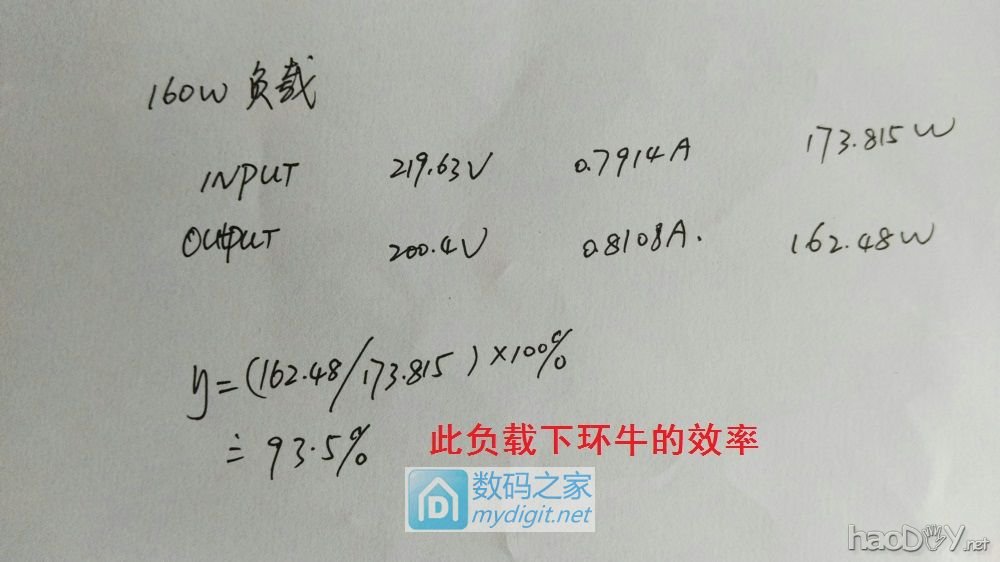 160W 负载
INPUT 219.63V 0.7914A 173.815W
OUTPUT 200.4V 0.8108A. 162.48W
y=(162.48/173.815)×100%
≐ 93.5% 此负载下环牛的效率
数码之家
mydigit.net
haoDIY.net